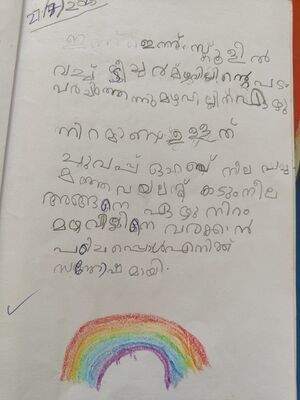 ഇന്ന് ഇന്ന് സ്കൂളിൽ
വച്ച് ടീച്ചർ മഴവില്ലിൻ്റെ പടം
മഴവില്ലിന് ഏഴു
നിറമാണ് ഉള്ളത്
ചുവപ്പ് ഓറഞ്ച് നീല പച്ച
മഞ്ഞ വയലറ്റ് കടുംനീല
അങ്ങനെ ഏഴു നിറം
മഴവില്ലിനെ വരക്കാൻ
പഠിച്ചപ്പോൾ എനിക്ക്
സന്തോഷമായി.